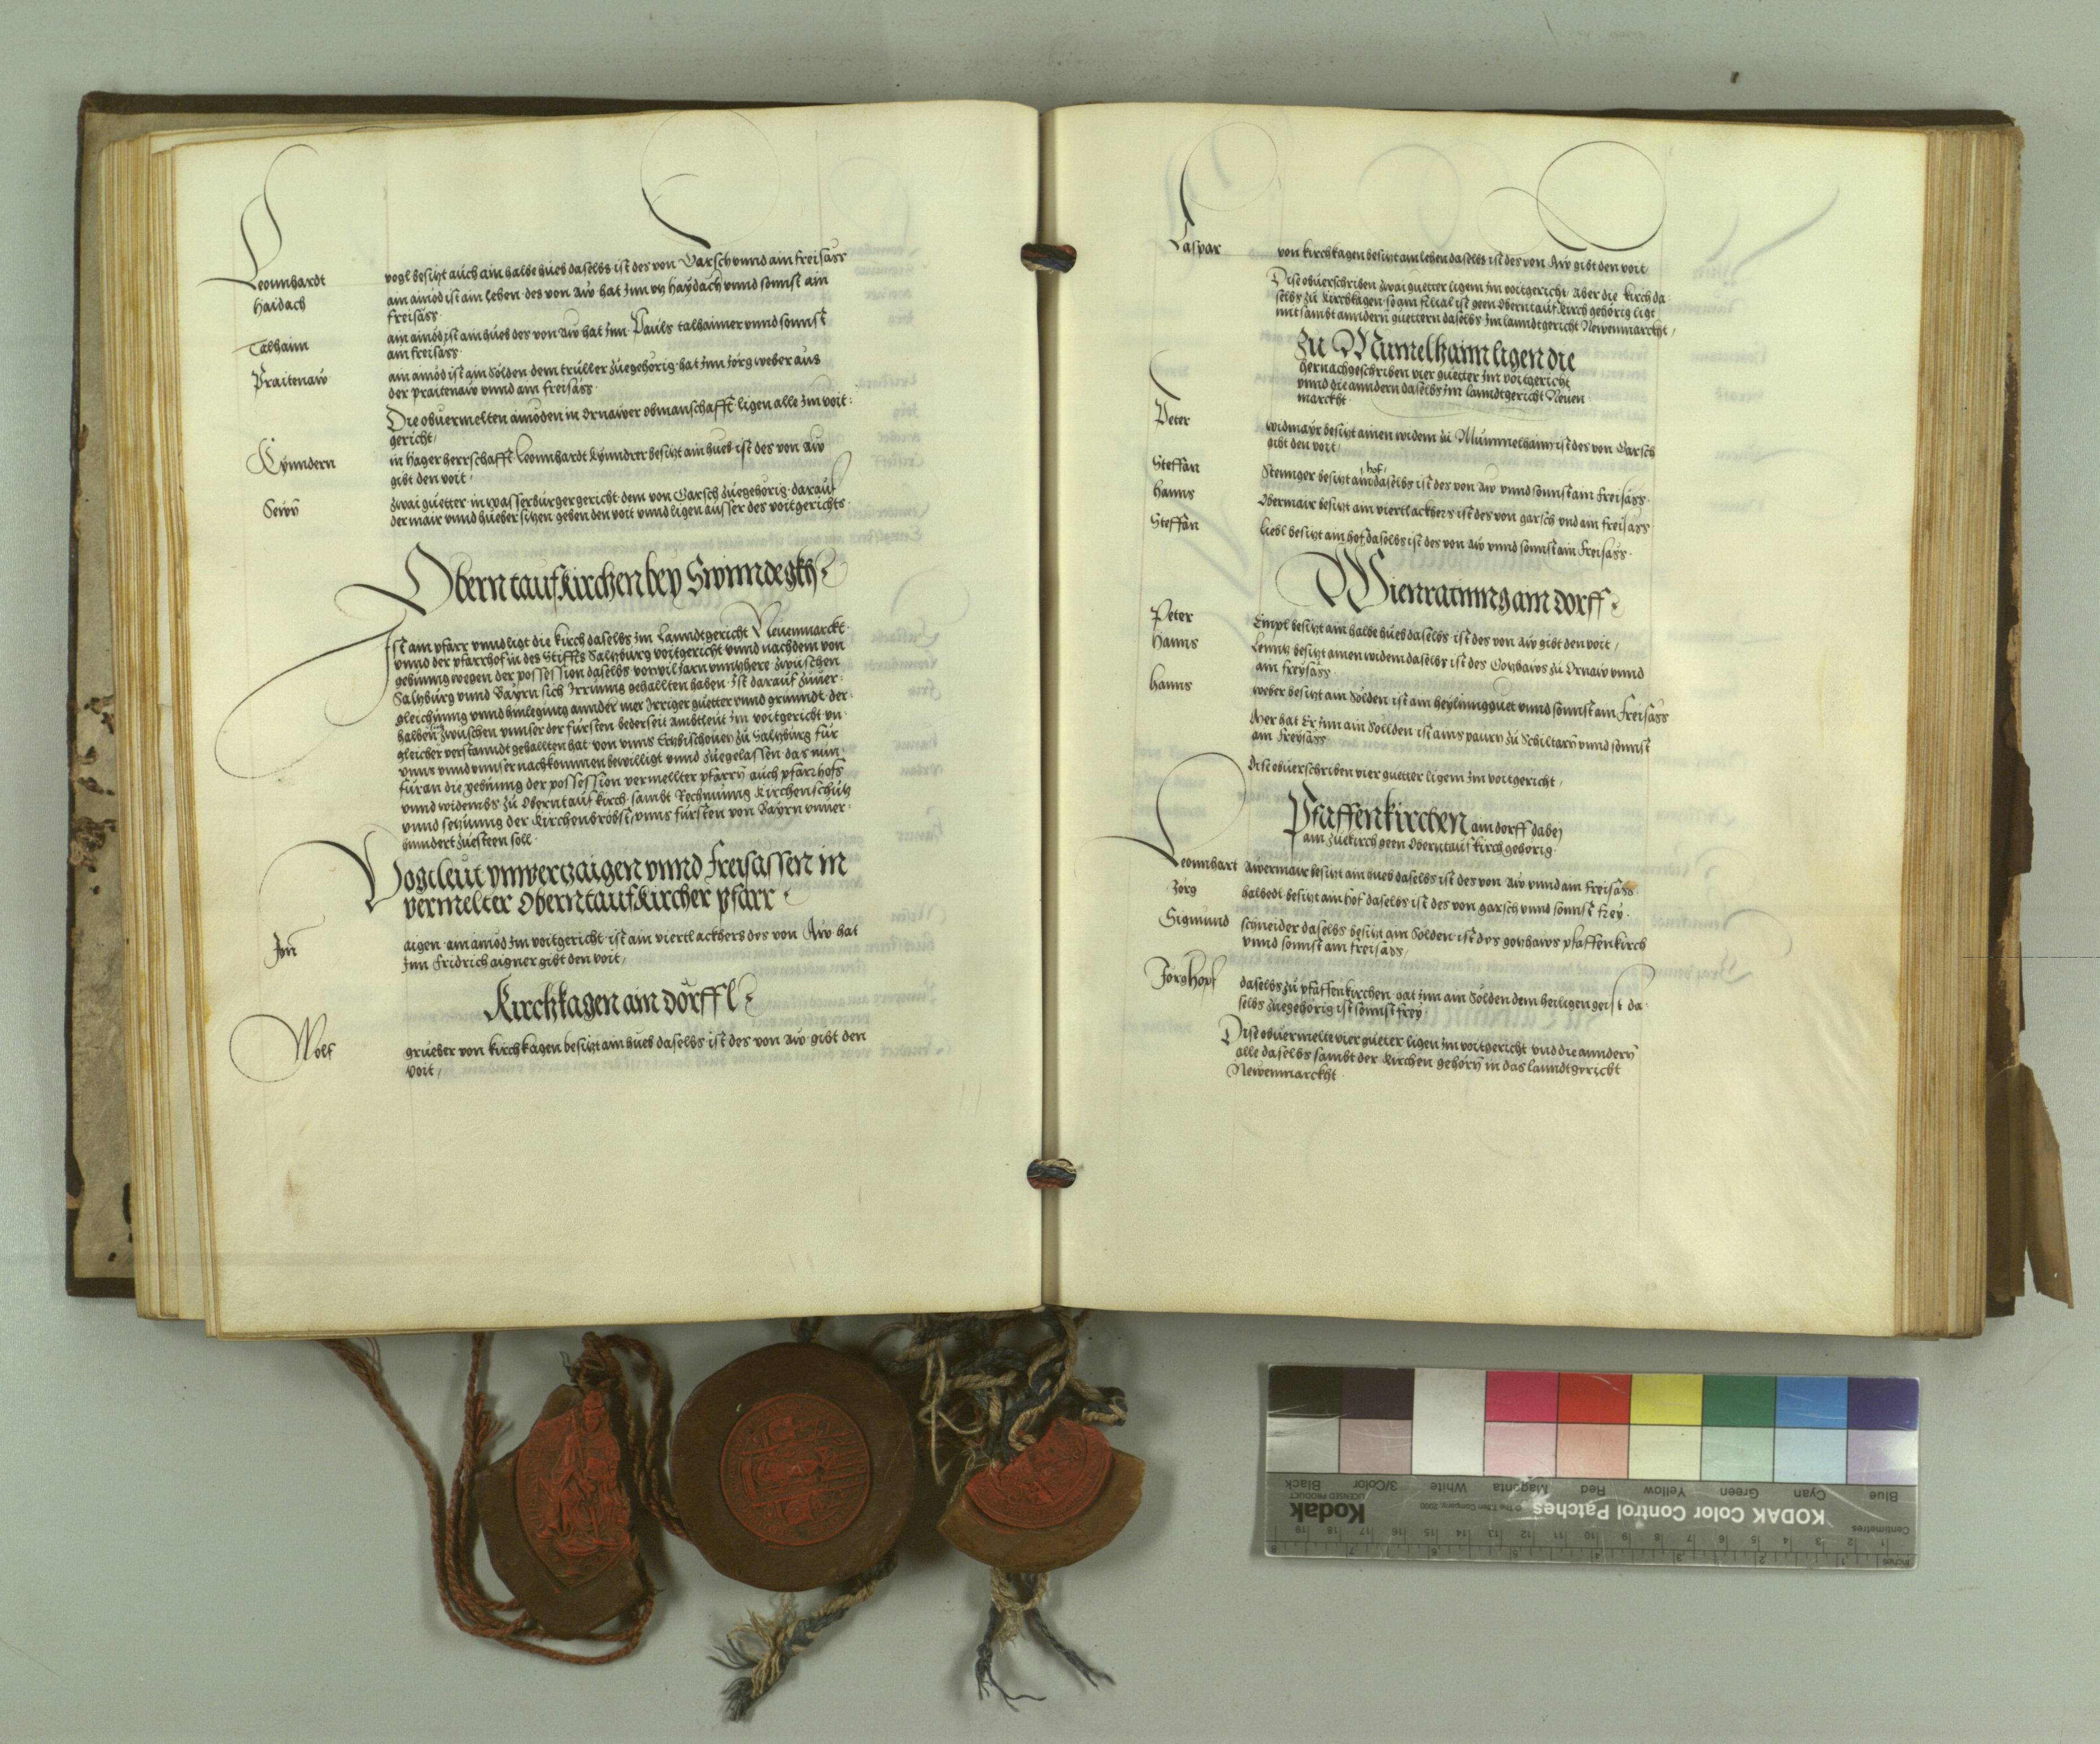 Leonnhardt vogl besitzt auch ain halbe hueb daselbs ist des von Garsch vnnd ain freisäss
Haidach ain ainöd ist ain lehen des von Aw hat Inn vtz Haydach vnnd sonnst ain
freisäss
Talhaim ain ainöd ist ain hueb des von Aw hat Inn Pauls talhaimer vnnd sonnst
ain freisass
Praitenaw ain ainöd ist ain Sölden dem trüller zuegehörig hat Inn Jörg weber aus
der praitenaw vnnd ain freisäss
Die obuermelten ainöden in Ornawer obmanschafft ligen alle Im voit
gericht
Kynndern in Hager herrschafft Leonnhardt kynndrer besitzt ain hueb ist des von aw
gibt den voit
Sewn zwai guetter in wasserburger gericht dem von Garsch zuegehörig darauf
der mair vnnd hueber sitzen geben den voit vnnd ligen ausser des voitgerichts
Obern taufkirchen bey Swinndegkh
Ist ain pfarr vnnd ligt die kirch daselbs Im Lanndtgericht Neuenmarckt
vnnd der pfarrhof in des Stiffts Saltzburg voitgericht vnnd nachdem von
gebung wegen der possession daselbs vor vil Jarn vnntzhere zwischen
Saltzburg vnnd Bayrn sich Irrung gehallten haben Ist darauf zuuer
gleichung vnnd hinlegung annder mer Irriger guetter vnnd grunndt der
halben zwischen vnnser der fürsten bederseit ambtleut Im voitgericht vn
gleicher verstanndt gehallten hat von vnns Ertzbischouen zu Saltzburg für
vnns vnnd vnnser nachkommen bewilligt vnnd zuegelassen das nun
füran die gebung der possession vermellter pfarrn auch pfarrhofs
vnnd widembs zu Oberntaufkirch sambt Rechnung kirchenschutz
vnnd setzung der kirchenbröbst vnns fürsten von Bayrn vnuer
hinndert zuesteen soll
Vogtleut vnuertzaigen vnnd freisassen in
vermelter Oberntaufkircher pfarr
Im aigen ain ainöd Im voitgericht ist ain viertl ackhers des von Aw hat
Inn Fridrich aigner gibt den voit
Kirchkagen ain dörffl
Wolf grueber von kirchkagen besitzt ain hueb daselbs ist des von aw gibt den
voit
Caspar von kirchkagen besitzt ain lehen daselbs ist des von Aw gibt den voit
Dise obuerschriben zwai guetter ligent Im voitgericht Aber die kirch da
selbs zu kirchkagen so ain filial ist geen Oberntaufkirch gehörig ligt
mit sambt anndern guettern daselbs Im lanndtgericht Newenmarckht
Zu Mumelhaim ligen die
hernachgeschriben vier guetter Im voitgericht
vnnd die anndern daselbs Im lanndtgericht Neuen
marckht
Peter widmayr besitzt ainen widem zu Mummelhaim ist des von Garsch
gibt den voit
Steffan Steninger besitzt ain hof daselbs ist des von Aw vnnd sonnst ain freisäss
Hanns Obermair besitzt ain viertl ackhers ist des von garsch vnd ain freisäss
Steffan liebl besitzt ain hof daselbs ist des von Aw vnnd sonnst ain freisäss
Wienratning ain dorff
Peter Empl besitzt ain halbe hueb daselbs ist des von Aw gibt den voit
Hanns Lenntz besitzt ainen widem daselbs ist des Gotzhaws zu Ornaw vnnd
ain freysäss
Hanns weber besitzt ain Sölden ist ain heyling guet vnnd sonnst ain freisäss
Mer hat Er Inn ain Söllden ist ains paurn zu Schiltarn vnnd sonnst
ain freysäss
Dise obuerschriben vier guetter ligent Im voitgericht
Pfaffenkirchen ain dorff dabey
ain zuekirch geen Oberntaufkirch gehörig
Leonnhart Awermair besitzt ain hueb daselbs ist des von Aw vnnd ain freisäss
Jörg halbedl besitzt ain hof daselbs ist des von garsch vnnd sonnst frey
Sigmund schneider daselbs besitzt ain Sölden ist des gotzhaws pfaffenkirch
vnnd sonnst ain freisäss
Jörg Hopf daselbs zu pfaffenkirchen hat Inn ain Sölden dem heiligen geist da
selbs zuegehörig ist sonnst frey
Dise obuermelte vier guetter ligen Im voitgericht vnd die anndern
alle daselbs sambt der kirchen gehörn in das lanndtgericht
Newenmarckht
Blue Cyan Green Yellow Red Magenta White 3/Color Black
KODAK Color Control Patches
© The Tiffen Company, 2000
Kodak
LICENSED PRODUCT
Centimetres
1 2 3 4 5 6 7 8 9 10 11 12 13 14 15 16 17 18 19
Inches
1 2 3 4 5 6 7 8